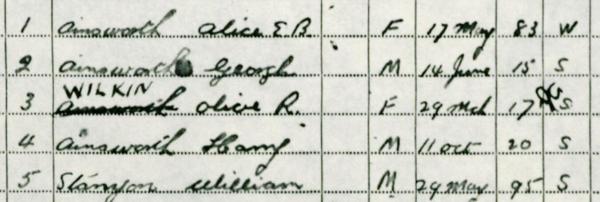 1 Ainsworth Alice E B. F 17 May 83 W
2 Ainsworth George M 14 June 15 S
WILKIN
3 Ainsworth Olive R. F 29 Mch 17 S
4 Ainsworth Harry M 11 Oct 20 S
5 Stanyon William M 29 May 95 S